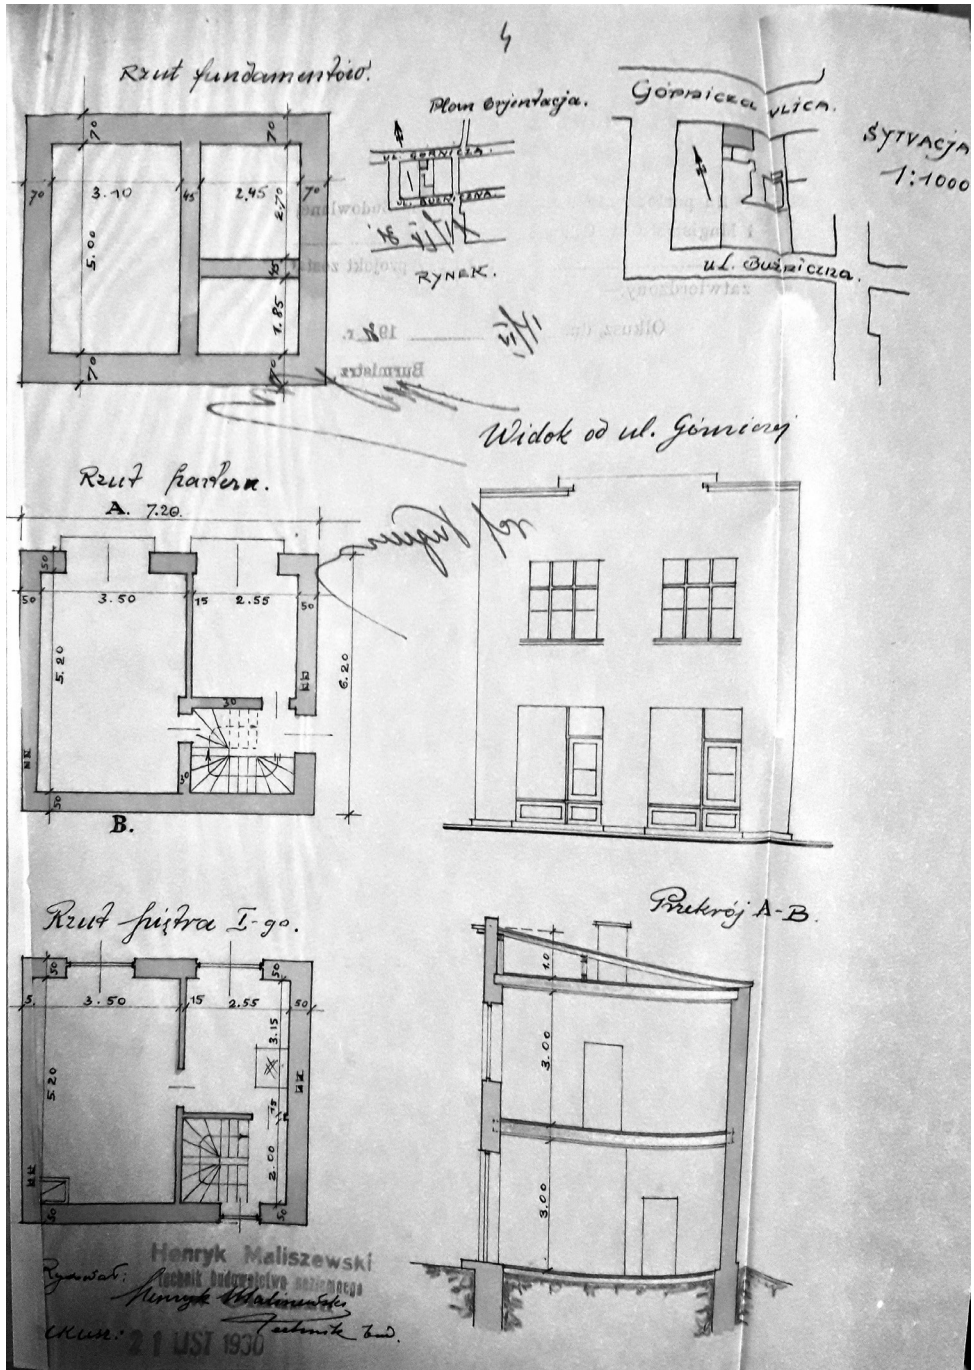 4
Rzut fundamentów.
70
70
70
3.10
45
2,45
70
5.00
2.70
45
1.85
70
70
Plan Orjentacja.
UL. GÓRNICZA.
UL. BUŻNICZNA
RYNEK.
GÓRNICZA ULICA.
SYTUACJA
1:1000
ul. Bużnicza.
zatwierdzony,
Olkusz, dn.
193 r.
Burmistrz
Widok od ul. Górniczej
Rzut parteru.
A. 7.20.
50
50
3.50
15
2.55
50
5.20
6.20
30
30
50
B.
Rzut piętra I-go.
50
50
5.
3.50
15
2.55
50
3.15
5.20
15
2.00
50
50
Przekrój A-B.
1.0
3.00
3.00
Henryk Maliszewski
technik budownictwa naziemnego
Rysował:
Henryk Maliszewski
Technik bud.
21 LIST 1930